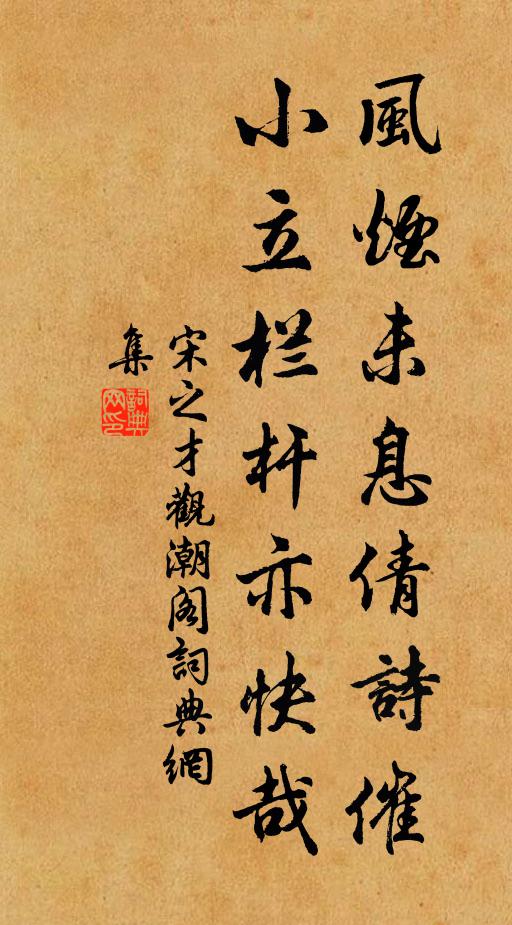 風煙未息倩詩催
小立栏杆亦快哉
宋之才觀潮阁詞典網
集
詞典
网印